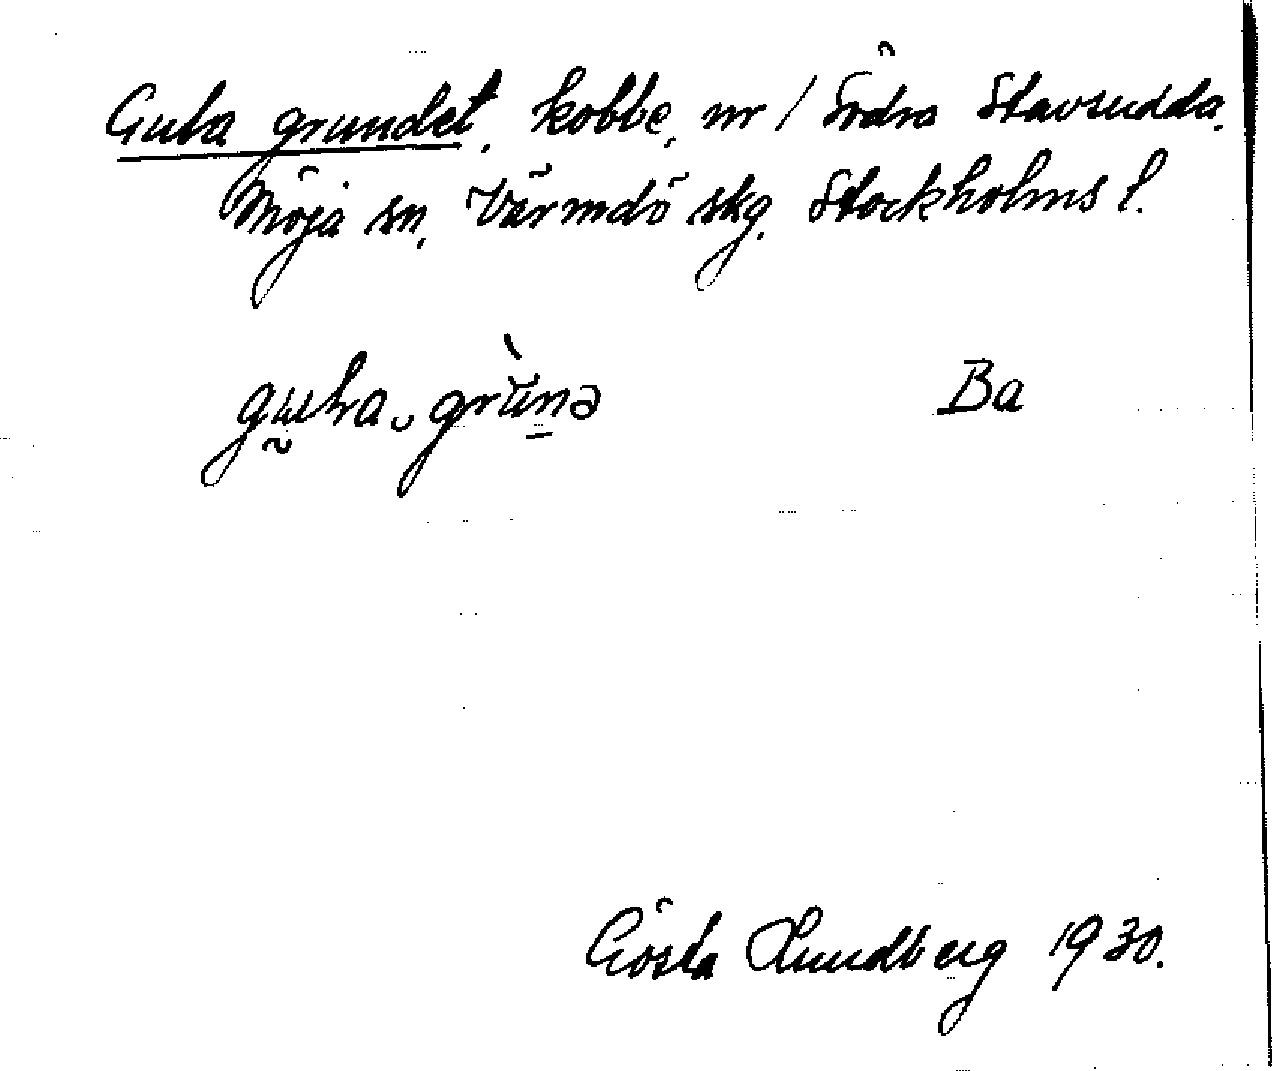 Gula grundet, kobbe, nr / Södra Stavsudda.
Möja sn, Värmdö skg. Stockholms l.
Ba
Gösta Lundberg 1930.